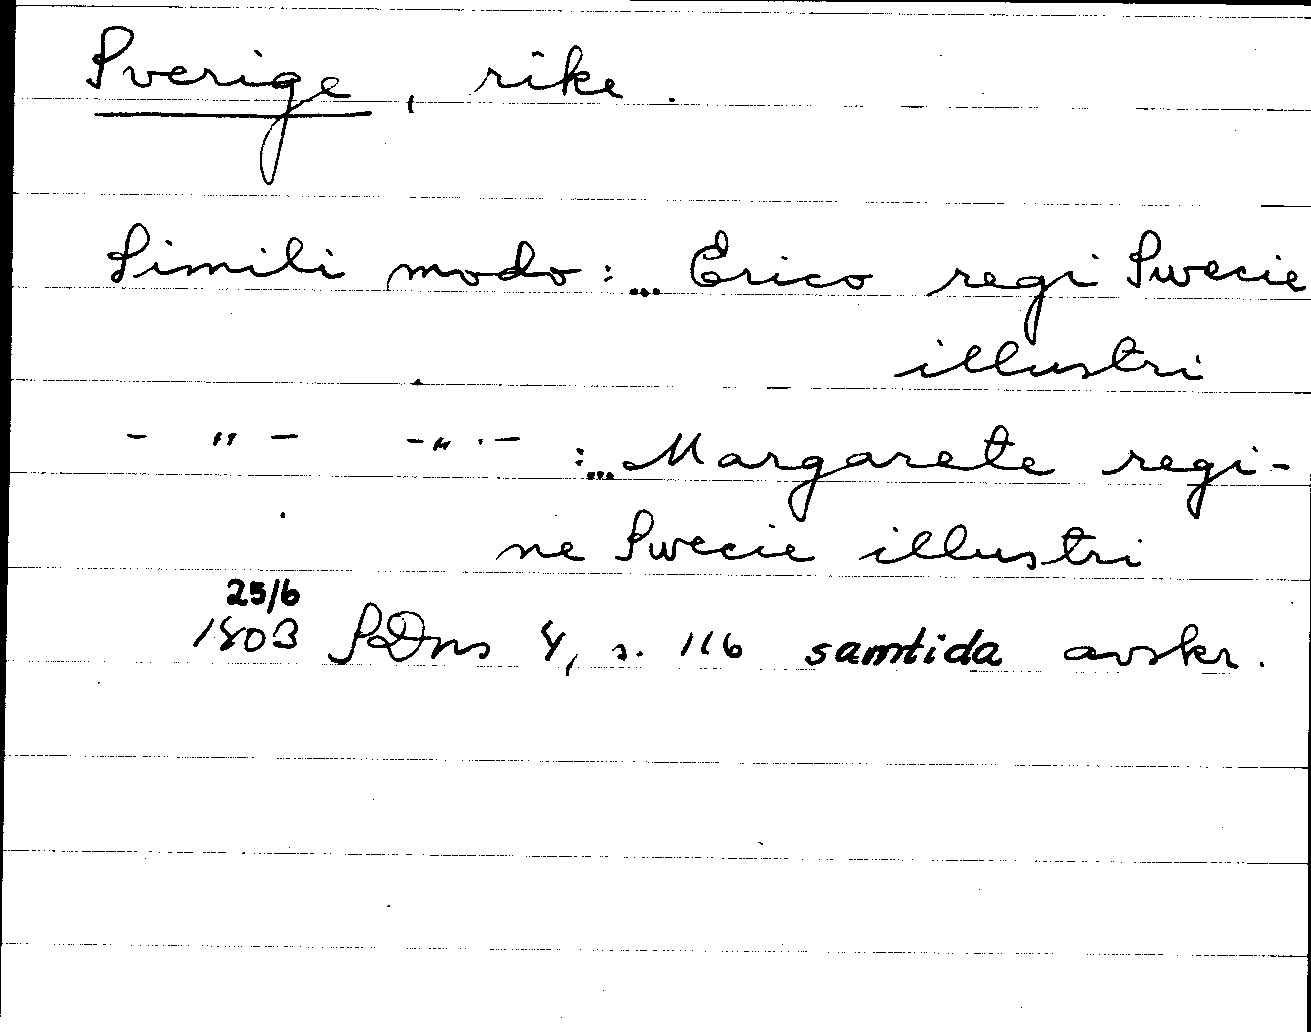 Sverige, rike.
Simili modo: ... Erico regi Swecie
illustri
- " - - " - : ... Margarete regi-
ne Swecie illustri
25/6
1403 SDns 4, s. 116 samtida avskr.